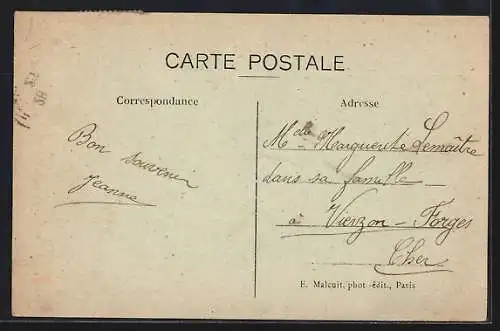 CARTE POSTALE
Correspondance
Adresse
Bon souvenir
Jeanne
Melle Marguerite Lemaître
dans sa famille
à Vierzon-Forges
Cher
E. Malcuit, phot-édit., Paris